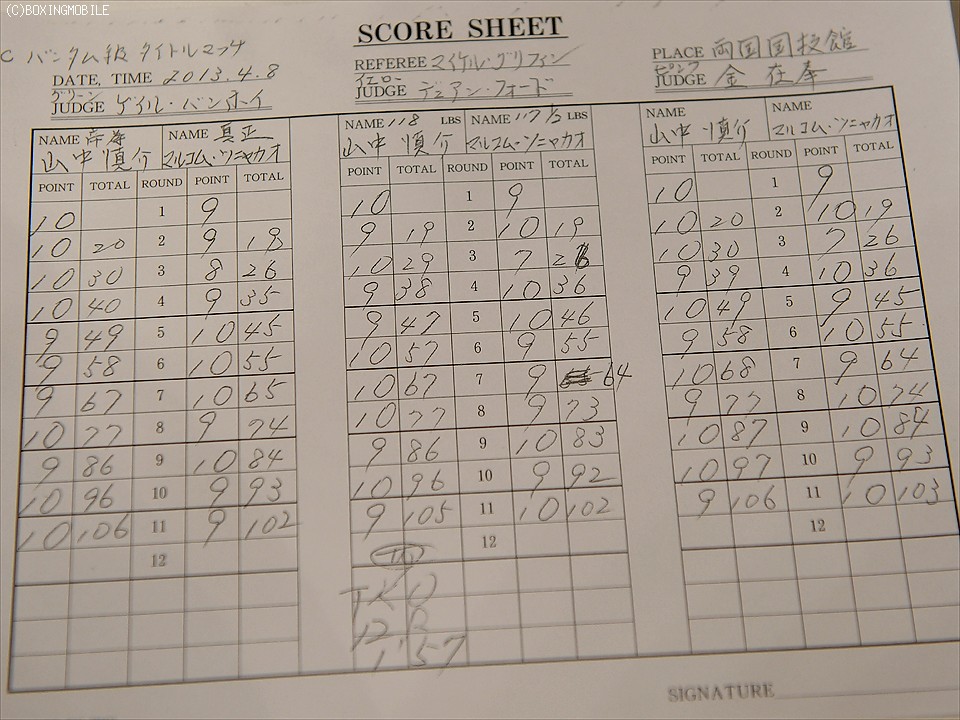 (C)BOXINGMOBILE
SCORE SHEET
C バンタム級 タイトルマッチ
DATE, TIME 2013.4.8
グリーン
JUDGE ゲイル・バンホイ
REFEREE マイケル・グリフィン
イエロー
JUDGE デュアン・フォード
PLACE 両国国技館
ピンク
JUDGE 金 在奉
NAME 帝海 NAME 真正
山中 慎介 マルコム・ツニャカオ
POINT TOTAL ROUND POINT TOTAL
10 1 9
10 20 2 9 18
10 30 3 8 26
10 40 4 9 35
9 49 5 10 45
9 58 6 10 55
9 67 7 10 65
10 77 8 9 74
9 86 9 10 84
10 96 10 9 93
10 106 11 9 102
12
NAME 118 LBS NAME 117 1/2 LBS
山中 慎介 マルコム・ツニャカオ
POINT TOTAL ROUND POINT TOTAL
10 1 9
9 19 2 10 19
10 29 3 7 26
9 38 4 10 36
9 47 5 10 46
10 57 6 9 55
10 67 7 9 64
10 77 8 9 73
9 86 9 10 83
10 96 10 9 92
9 105 11 10 102
12
TKO
12R
1'57
NAME NAME
山中 慎介 マルコム・ツニャカオ
POINT TOTAL ROUND POINT TOTAL
10 1 9
10 20 2 10 19
10 30 3 7 26
9 39 4 10 36
10 49 5 9 45
9 58 6 10 55
10 68 7 9 64
9 77 8 10 74
10 87 9 10 84
10 97 10 9 93
9 106 11 10 103
12
SIGNATURE